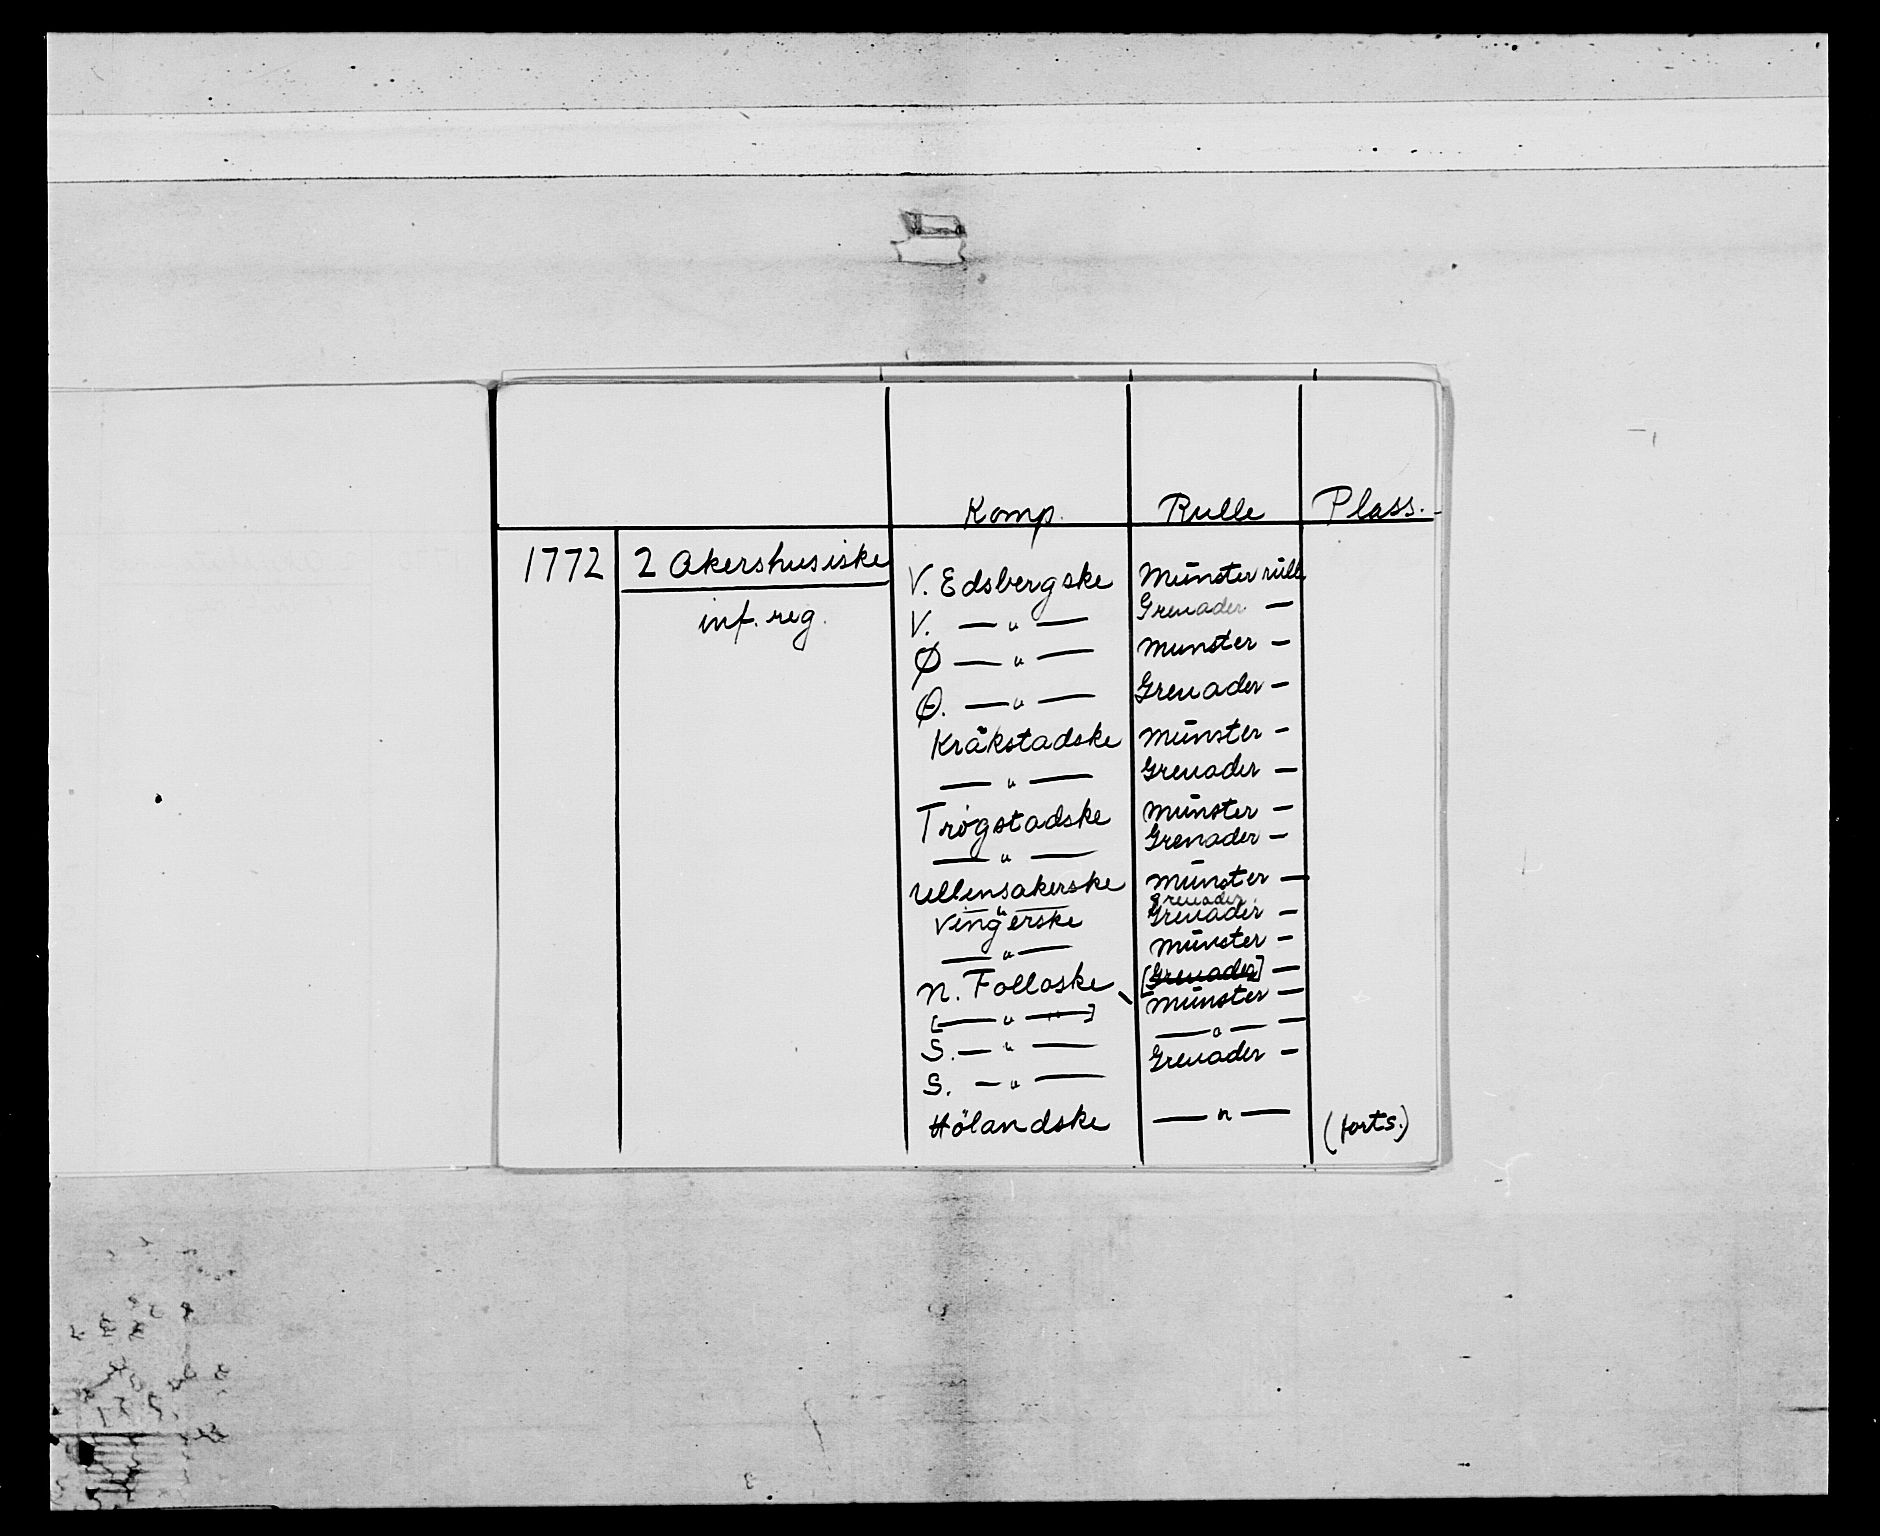 Komp. Rulle Plass.
1772 2 Akershusiske V. Edsbergske Münster rull
inf. reg. V. — " — Grenader —
Ø — " — Munster —
Ø. — " — Grenader —
Kråkstadske Münster —
— " — Grenader —
Trøgstadske Münster —
— " — Grenader —
Ullensakerske Münster —
— " — Grenader
Vingerske Grenader —
— " — Münster —
N. Folloske [Grenader] —
[— " —] Münster —
S. — " — — " — —
S. — " — Grenader —
Hölandske — " — (forts.)